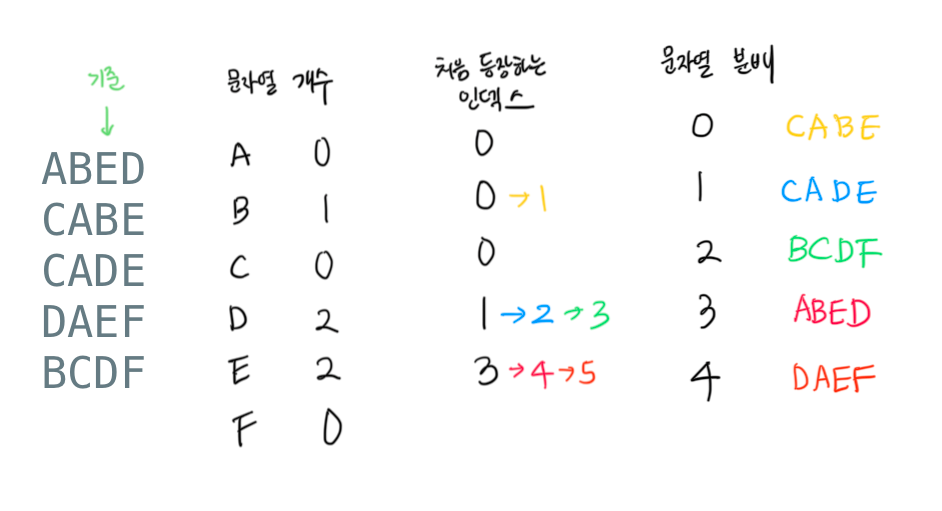 기준
↓
ABED
CABE
CADE
DAEF
BCDF
문자열 개수
A 0
B 1
C 0
D 2
E 2
F 0
처음 등장하는
인덱스
0
0 → 1
0
1 → 2 → 3
3 → 4 → 5
문자열 분배
0 CABE
1 CADE
2 BCDF
3 ABED
4 DAEF